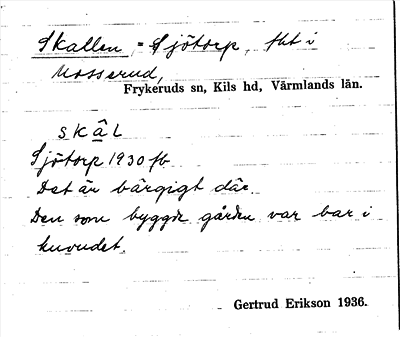 Skallen, = Sjötorp, fht i
Mosserud,
Frykeruds sn, Kils hd, Värmlands län.
skâl
Sjötorp 1930 fb
Det är bärgigt där.
Den som byggde gården var bar i
huvudet.
Gertrud Erikson 1936.